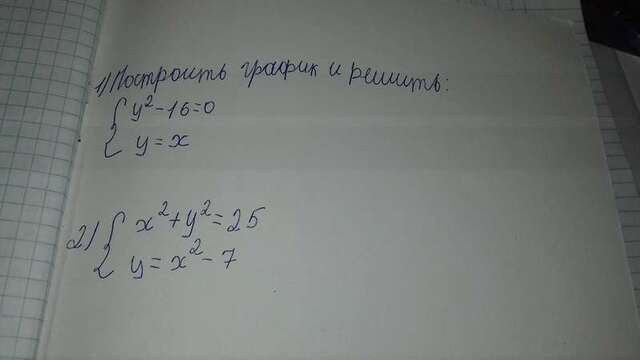 1) Построить график и решить:
y²-16=0
y=x
2) x²+y²=25
y=x²-7